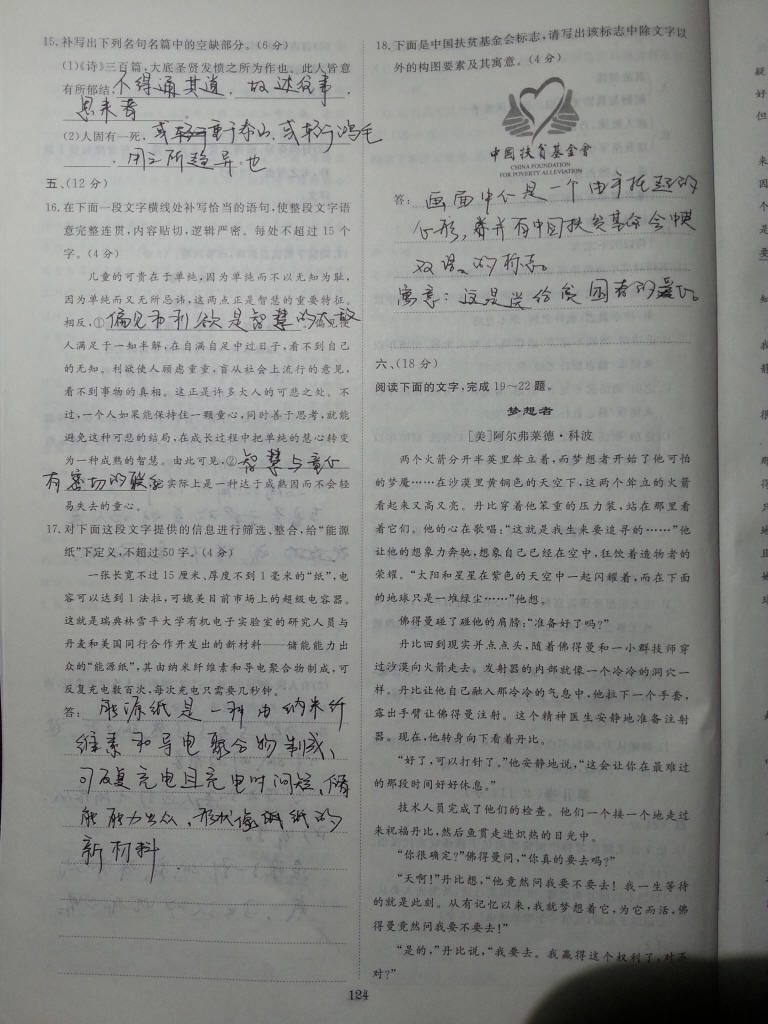 15.补写出下列名句名篇中的空缺部分。(6分)
(1)《诗》三百篇,大底圣贤发愤之所为作也。此人皆意
有所郁结,不得通其道,故述往事,
思来者
(2)人固有一死,或重于泰山,或轻于鸿毛
,用之所趋异也
五、(12分)
16.在下面一段文字横线处补写恰当的语句,使整段文字语
意完整连贯,内容贴切,逻辑严密。每处不超过15个
字。(4分)
儿童的可贵在于单纯,因为单纯而不以无知为耻,
因为单纯而又无所忌讳,这两点正是智慧的重要特征。
相反,①偏见和利欲是智慧的大敌。偏见使
人满足于一知半解,在自满自足中过日子,看不到自己
的无知。利欲使人顾虑重重,盲从社会上流行的意见,
看不到事物的真相。这正是许多大人的可悲之处。不
过,一个人如果能保持住一颗童心,同时善于思考,就能
避免这种可悲的结局,在成长过程中把单纯的慧心转变
为一种成熟的智慧。由此可见,②智慧与童心
有密切的联系,实际上是一种达于成熟因而不会轻
易失去的童心。
17.对下面这段文字提供的信息进行筛选、整合,给“能源
纸”下定义,不超过50字。(4分)
一张长宽不过15厘米、厚度不到1毫米的“纸”,电
容可以达到1法拉,可媲美目前市场上的超级电容器。
这就是瑞典林雪平大学有机电子实验室的研究人员与
丹麦和美国同行合作开发出的新材料——储能能力出
众的“能源纸”,其由纳米纤维素和导电聚合物制成,可
反复充电数百次,每次充电只需要几秒钟。
答:能源纸是一种由纳米纤
维素和导电聚合物制成、
可反复充电且充电时间短、储
能能力出众、形状像纸的
新材料.
18.下面是中国扶贫基金会标志,请写出该标志中除文字以
外的构图要素及其寓意。(4分)
中國扶貧基金會
CHINA FOUNDATION
FOR POVERTY ALLEVIATION
答:画面中心是一个由手托起的
心形,并有中国扶贫基金会中英
双语的标志。
寓意:这是送给贫困者的爱心。
六、(18分)
阅读下面的文字,完成19~22题。
梦想者
[美]阿尔弗莱德·科波
两个火箭分开半英里耸立着,而梦想者开始了他可怕
的梦魇……在沙漠里黄铜色的天空下,这两个耸立的火箭
看起来又高又亮。丹比穿着他笨重的压力装,站在那里看
着它们。他的心在歌唱:“这就是我生来要追寻的……”他
让他的想象力奔驰,想象自己已经在空中,狂饮着造物者的
荣耀。“太阳和星星在紫色的天空中一起闪耀着,而在下面
的地球只是一堆绿尘……”他想。
佛得曼碰了碰他的肩膀:“准备好了吗?”
丹比回到现实并点点头,随着佛得曼和一小群技师穿
过沙漠向火箭走去。发射器的内部就像一个冷冷的洞穴一
样。丹比让他自己融入那冷冷的气息中,他拉下一个手套,
露出手臂让佛得曼注射。这个精神医生安静地准备注射
器。现在,他转身向下看着丹比。
“好了,可以打针了。”他安静地说,“这会让你在最难过
的那段时间好好休息。”
技术人员完成了他们的检查。他们一个接一个地走过
来祝福丹比,然后鱼贯走进炽热的日光中。
“你很确定?”佛得曼问,“你真的要去吗?”
“天啊!”丹比想,“他竟然问我要不要去!我一生等待
的就是此刻。从有记忆以来,我就梦想着它,为它而活,佛
得曼竟然问我要不要去!”
“是的,”丹比说,“我要去。我赢得这个权利了,对不
对?”
124